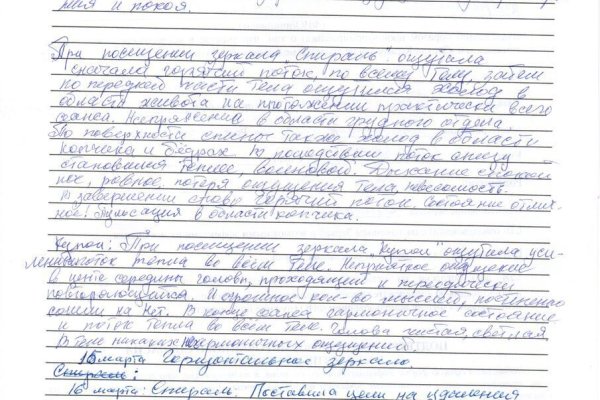 ния и покоя.
При посещении зеркала "Спираль" ощутила
сначала горячий поток, по всему телу, затем
по передней части тела ощущался холод в
области живота на протяжении практически всего
сеанса. Напряжение в области грудного отдела.
По поверхности спины также холод в области
копчика и бедрах. В последствии поток снизу
становился теплее, волновой. Дыхание спокой
ное, ровное, потеря ощущения тела, невесомость.
В завершении снова горячий поток. Состояние отлич-
ное. Пульсация в области копчика.
Купол: При посещении зеркала "Купол" ощутила уси-
ление поток тепла во всем теле. Неприятное ощущение
в центе середины головы, проходящий и переодически
повторяющийся. И огромное кол-во мыслей, постепенно
сошли на нет. В конце сеанса гармоничное состояние
и поток тепла во всем теле. Голова чистая, светлая
В теле никаких негармоничных ощущений.
15 марта Горизонтальное зеркало.
Спираль:
16 марта: Спираль. Поставила цели на удаления